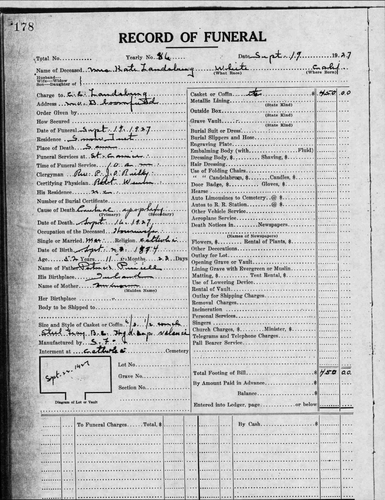 178
RECORD OF FUNERAL
Total No. Yearly No. 86 Date Sept. 19 1927
Name of Deceased Mrs Kate Landsburg White Calif
(What Race) (Where Born)
Husband of
Wife Widow
Son Daughter of
Charge to Landsburg
Address
Order Given by
How Secured
Date of Funeral Sept. 19, 1927
Residence
Place of Death Same
Funeral Services at St.
Time of Funeral Service 10 a.m.
Clergyman Rev. P.J. O'Reilly
Certifying Physician Robt.
His Residence
Number of Burial Certificate
Cause of Death apoplexy
(Primary) (Secondary)
Date of Death Sept. 16, 1927
Occupation of the Deceased Housewife
Single or Married Mar. Religion Catholic
Date of Birth 1874
Age 52 Years 11 Months 22 Days
Name of Father Patrick
His Birthplace
Name of Mother unknown
(Maiden Name)
Her Birthplace
Body to be Shipped to
Size and Style of Casket or Coffin 6/3 1/2 couch
Manufactured by S.F.
Interment at Catholic Cemetery
Lot No.
Grave No.
Section No.
Diagram of Lot or Vault
Casket or Coffin 450 00
(State Kind)
Metallic Lining
(State Kind)
Outside Box
(State Kind)
Grave Vault
(State Kind)
Burial Suit or Dress
Burial Slippers and Hose
Engraving Plate
Embalming Body (with Fluid)
Dressing Body, $ Shaving, $
Hair Dressing
Use of Folding Chairs
" " Candelabrum, $ Candles, $
Door Badge, $ Gloves, $
Hearse
Auto Limousines to Cemetery, @ $
Autos to R. R. Station, @ $
Other Vehicle Service
Aeroplane Service
Death Notices in Newspapers
(Names of Newspapers)
Flowers, $ Rental of Plants, $
Other Decorations
Outlay for Lot
Opening Grave or Vault
Lining Grave with Evergreen or Muslin
Matting, $ Tent Rental, $
Use of Lowering Device
Rental of Vault
Outlay for Shipping Charges
Removal Charges
Personal Services
Singers
Church Charges, $ Minister, $
Telegrams and Telephone Charges
Pall Bearer Service
Total Footing of Bill $ 450 00
By Amount Paid in Advance
Balance $
Entered into Ledger, page or below
To Funeral Charges Total, $ By Cash $